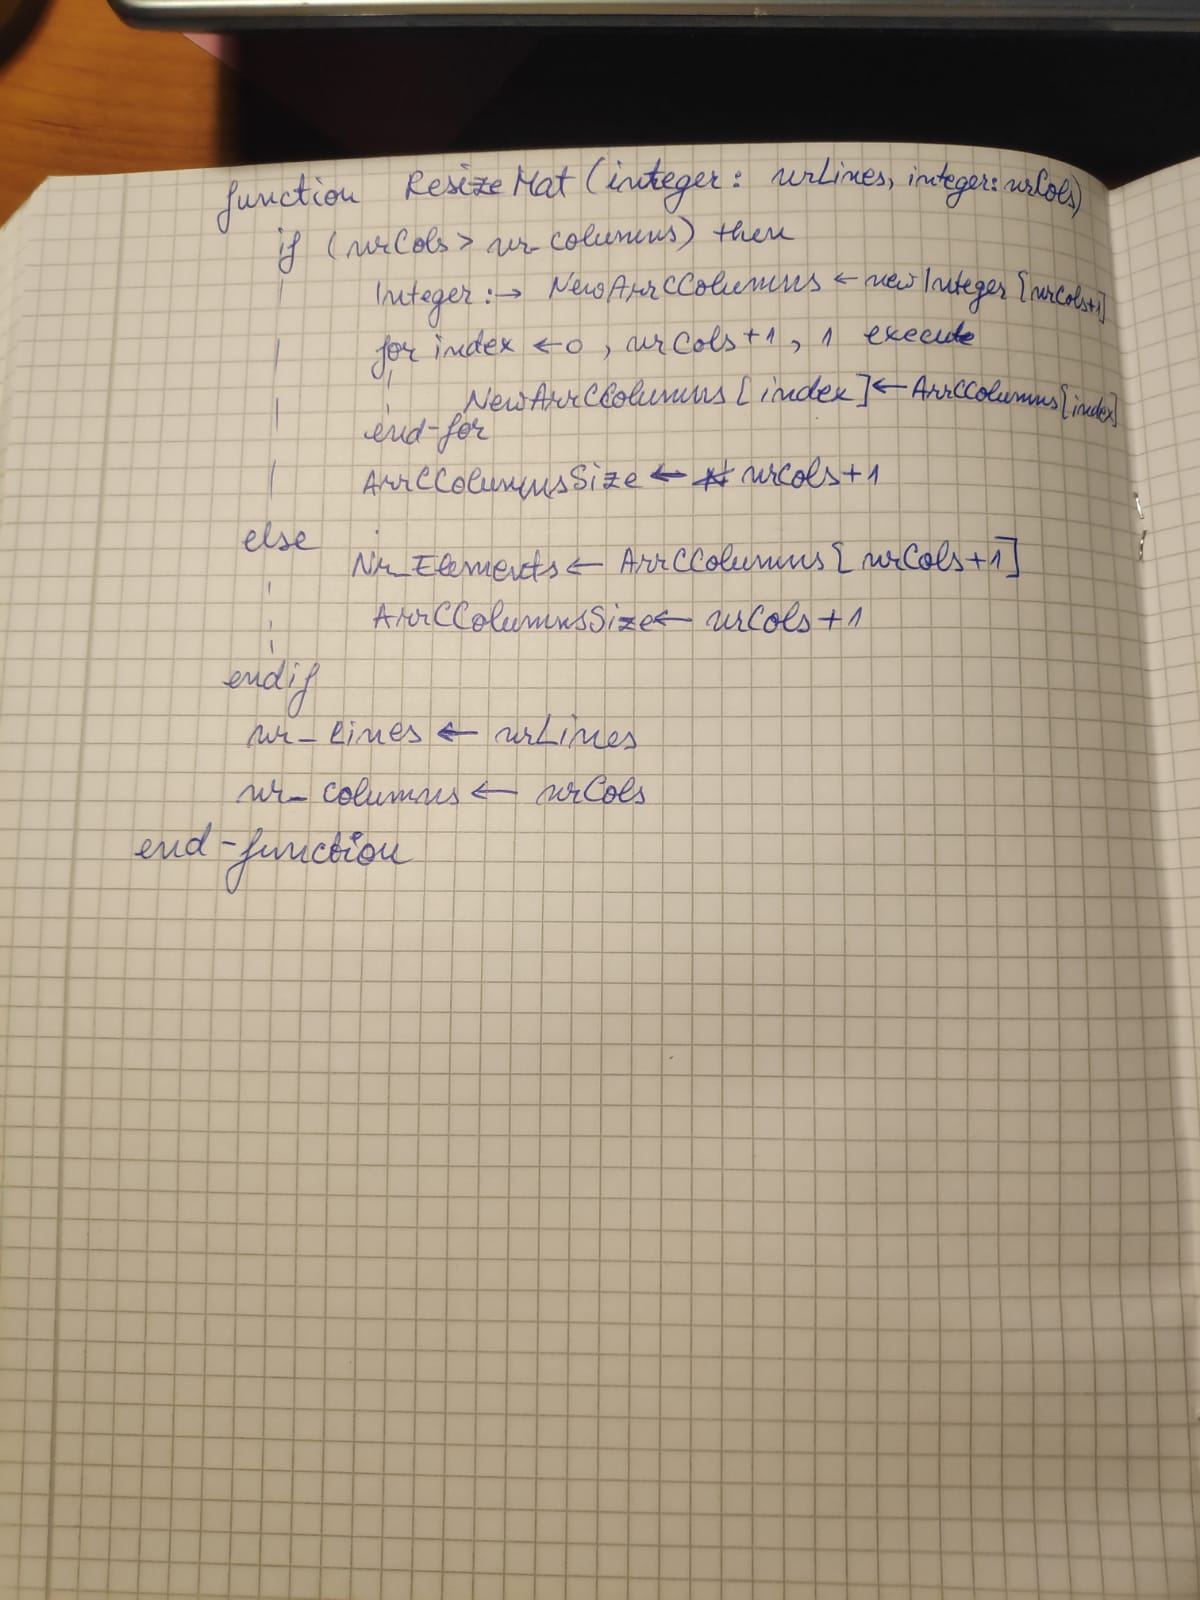 function ResizeMat (integer: nrLines, integer: nrCols)
if (nrCols > nr_columns) then
Integer :→ NewArrCColumns ← new Integer [nrCols+1]
for index ← 0 , nrCols+1 , 1 execute
NewArrCColumns [index] ← ArrCColumns [index]
end-for
ArrCColumnsSize ← nrCols+1
else
Nr_Elements ← ArrCColumns [nrCols+1]
ArrCColumnsSize ← nrCols+1
endif
nr_lines ← nrLines
nr_columns ← nrCols
end-function